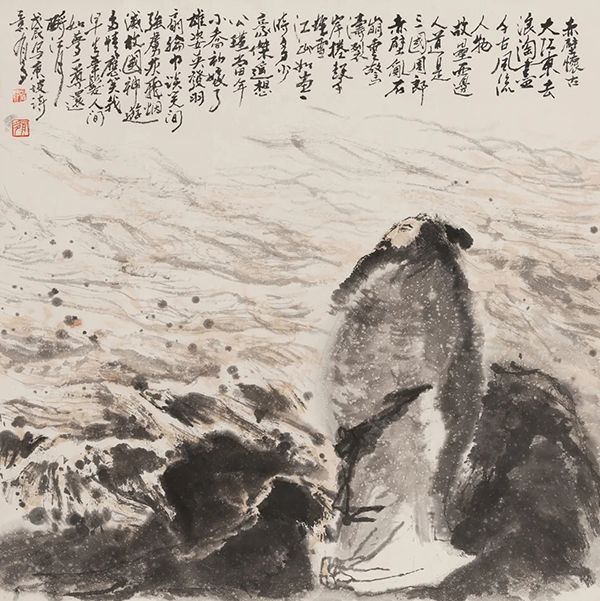 赤壁懷古
大江東去
浪淘盡
千古風流
人物
故壘西邊
人道是
三國周郎
赤壁亂石
崩雲驚
濤裂
岸捲起千
堆雪
江山如畫一
時多少
豪傑遙想
公瑾當年
小喬初嫁了
雄姿英發羽
扇綸巾談笑間
強虜灰飛煙
滅故國神遊
多情應笑我
早生華髮人間
如夢一尊還
酹江月
東坡詩